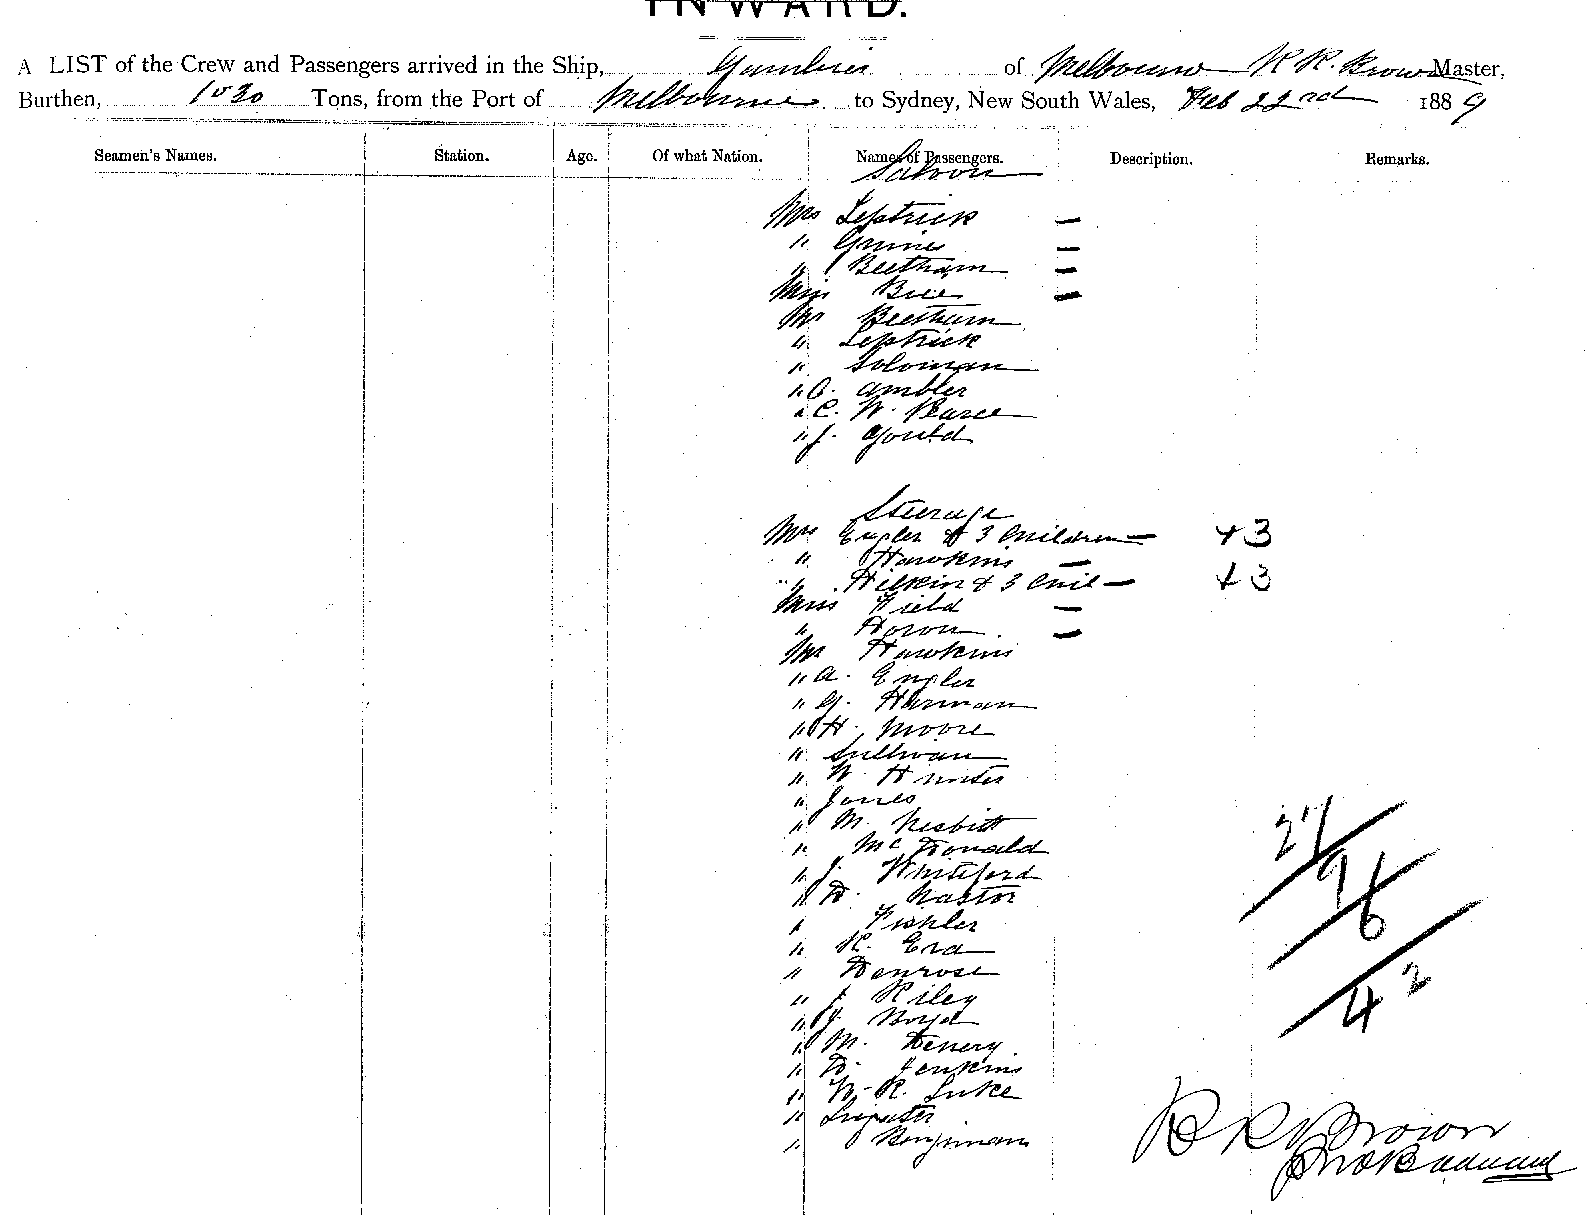 INWARD.
A LIST of the Crew and Passengers arrived in the Ship, Gambier of Melbourne R R. Brown Master,
Burthen, 1030 Tons, from the Port of Melbourne to Sydney, New South Wales, Feb 22nd 1889
Seamen's Names. Station. Age. Of what Nation. Names of Passengers. Description. Remarks.
Saloon
Mrs Leptrick —
" Grimes —
" Beetham —
Miss —
Mr Beetham
" Leptrick
" Soloman
" Ambler
" C. W. Pearce
" J. Gould
Steerage
Mrs Engler & 3 Children — +3
" Hawkins —
" Hilkin & 3 Chil — +3
Miss Field —
" Horon —
Mr Hawkins
" A. Engler
" G. Harman
" H. Moore
" Sullivan
" W Hunter
" Jones
" M. Nesbitt
" McDonald
" J. Whiteford
" D. Nastor
" Fishler
" R. Era
" Denrose
" J Riley
" J. Boyd
" M. Denery
" D. Jenkins
" W. R. Luke
"
" Benjiman
27/
9/6
/42
R R Brown